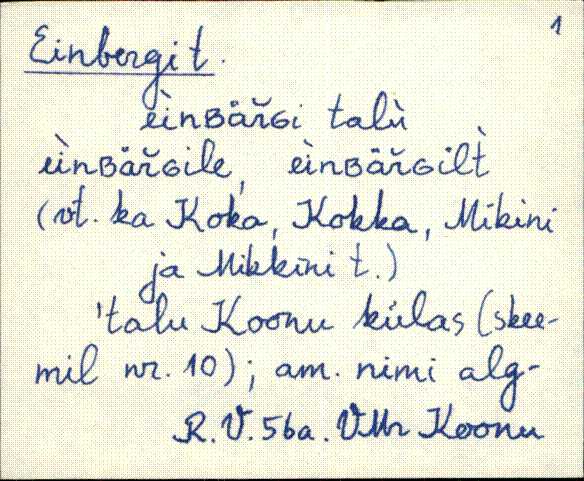 1
Einbergi t.
èìnʙäřɢi talù
èìnʙäřɢile, èìnʙäřɢilt̀
(vt. ka Koka, Kokka, Mikini
ja Mikkini t.)
'talu Koonu külas (skee-
mil nr. 10); am. nimi alg-
R.V. 56a. VMr Koonu